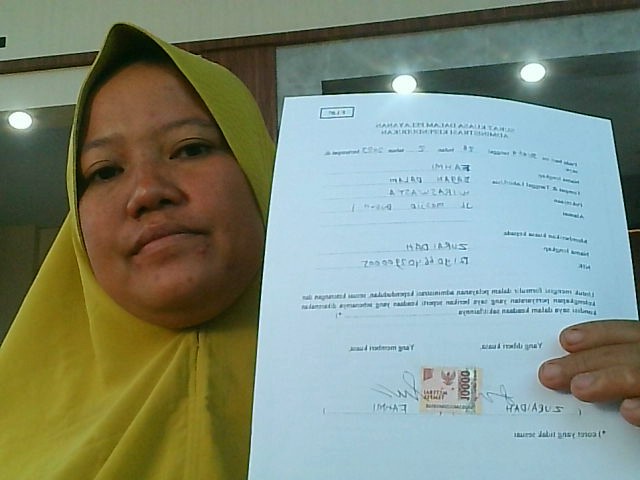 F-1.07
SURAT KUASA DALAM PELAYANAN
ADMINISTRASI KEPENDUDUKAN
Pada hari ini tanggal 28 bulan 2 tahun 2023 bertempat di
saya:
Nama lengkap : FAHMI
Tempat & Tanggal Lahir/Usia : DALAM
Pekerjaan : WIRASWASTA
Alamat : JL MESJID
Memberikan kuasa kepada
Nama lengkap : ZURAIDAH
NIK
Untuk mengisi formulir dalam pelayanan administrasi kependudukan, sesuai keterangan dan
kelengkapan persyaratan yang saya berikan seperti keadaan yang sebenarnya dikarenakan
kondisi saya dalam keadaan sakit/lainnya *)
Yang diberi kuasa, Yang memberi kuasa,
10000
METERAI
TEMPEL
( ZURAIDAH FAHMI )
*) coret yang tidak sesuai